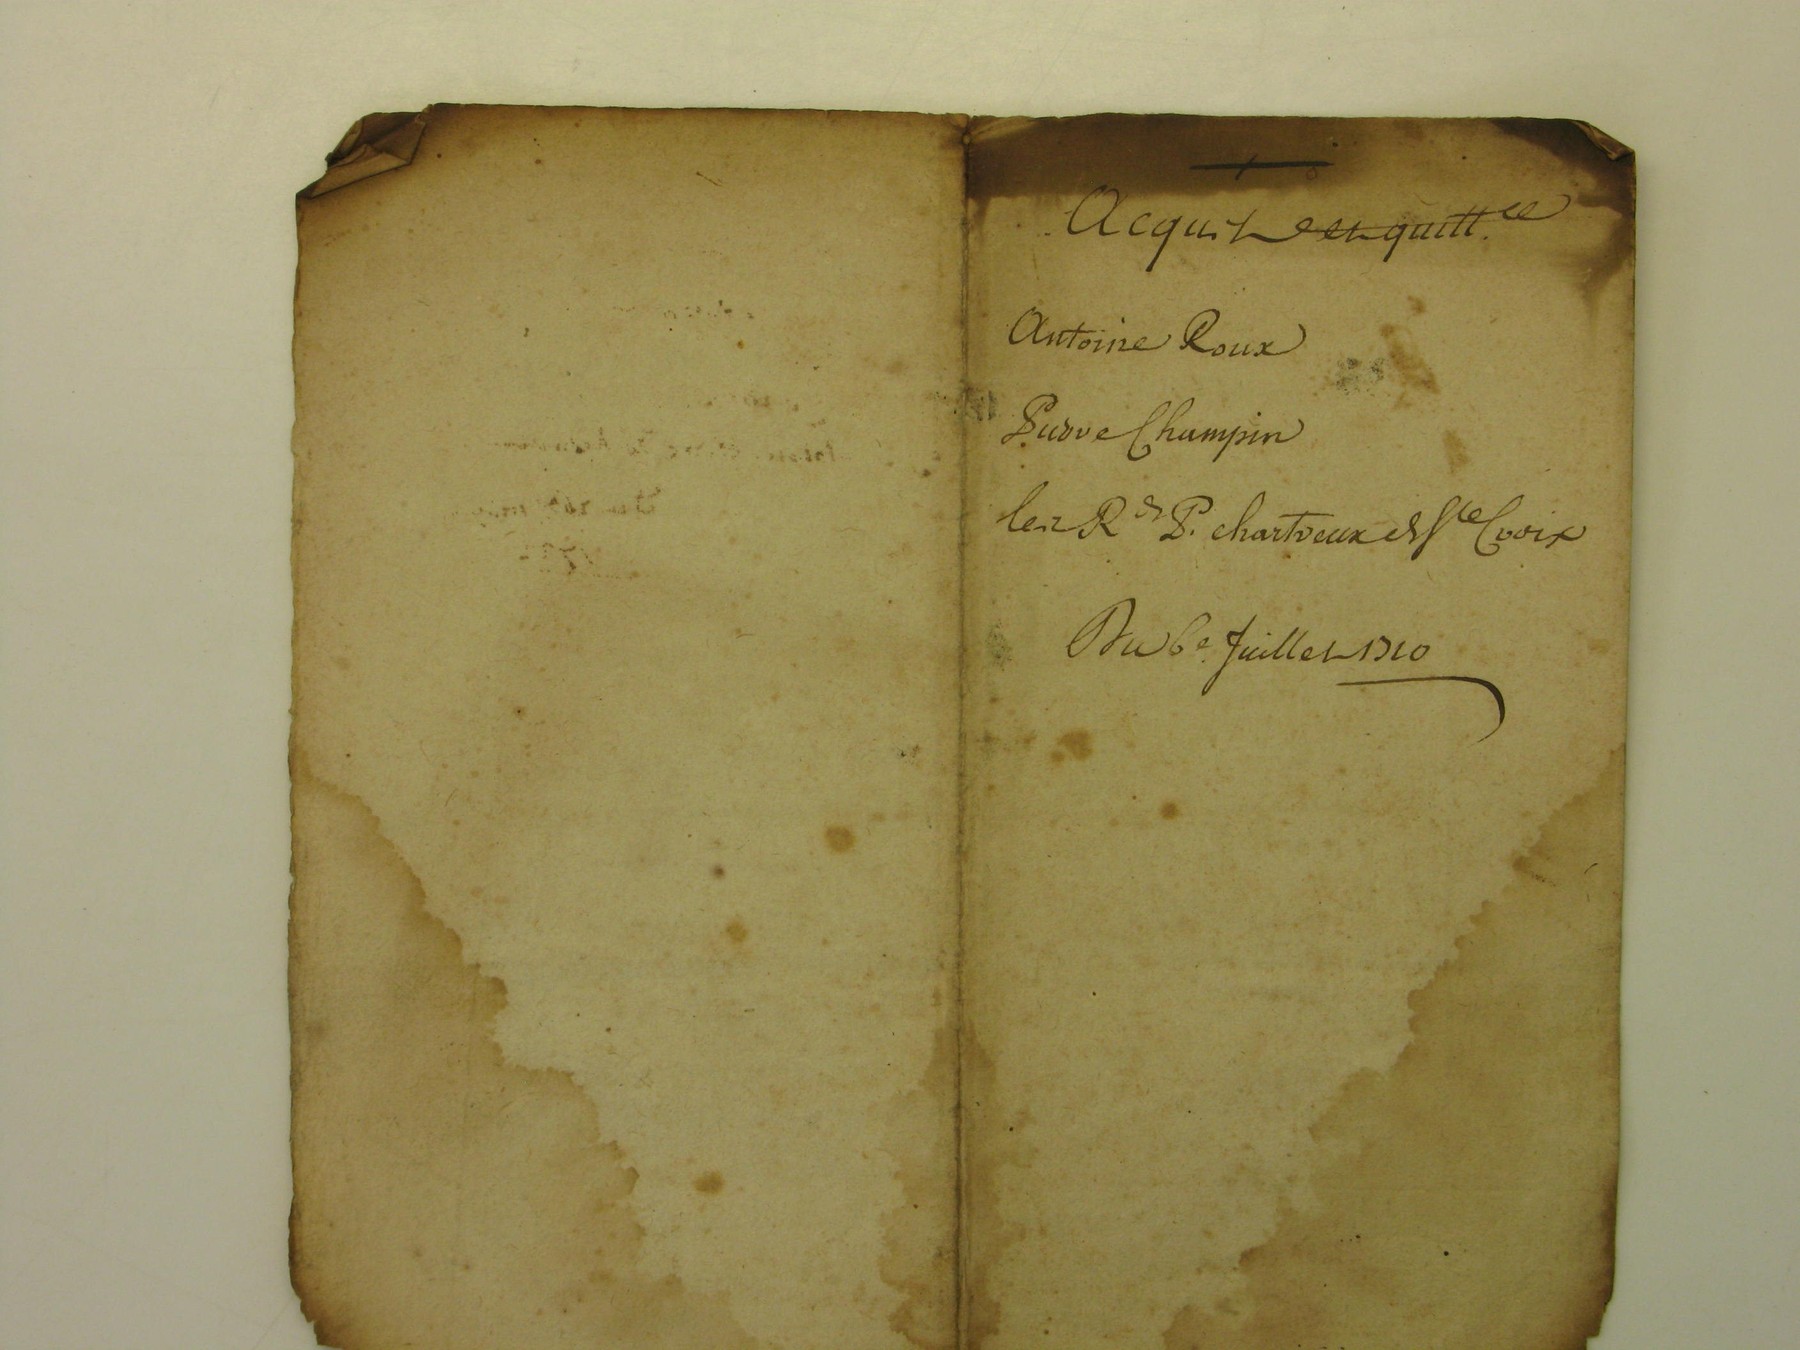 Acquit et quitt.ce
Antoine Roux
Pierre Champin
les Rds P. chartreux de Ste Croix
Du 6e Juillet 1710